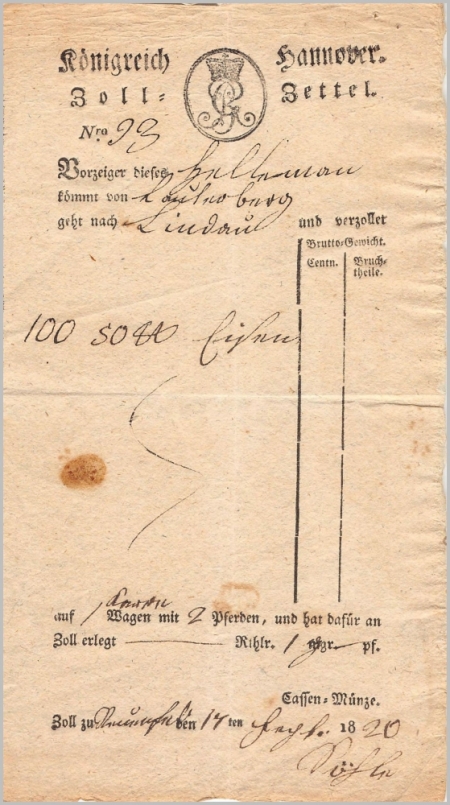 Königreich Hannover.
Zoll- Zettel.
Nro 93
Vorzeiger dieses Helleman
kömmt von Lauterberg
geht nach Lindau und verzollet
Brutto-Gewicht.
Centn. Bruch-
theile.
100 50 ℔ Eisen
auf 1 Karren Wagen mit 2 Pferden, und hat dafür an
Zoll erlegt Rthlr. 1 ggr. pf.
Cassen-Münze.
Zoll zu den 14ten Sept. 1820